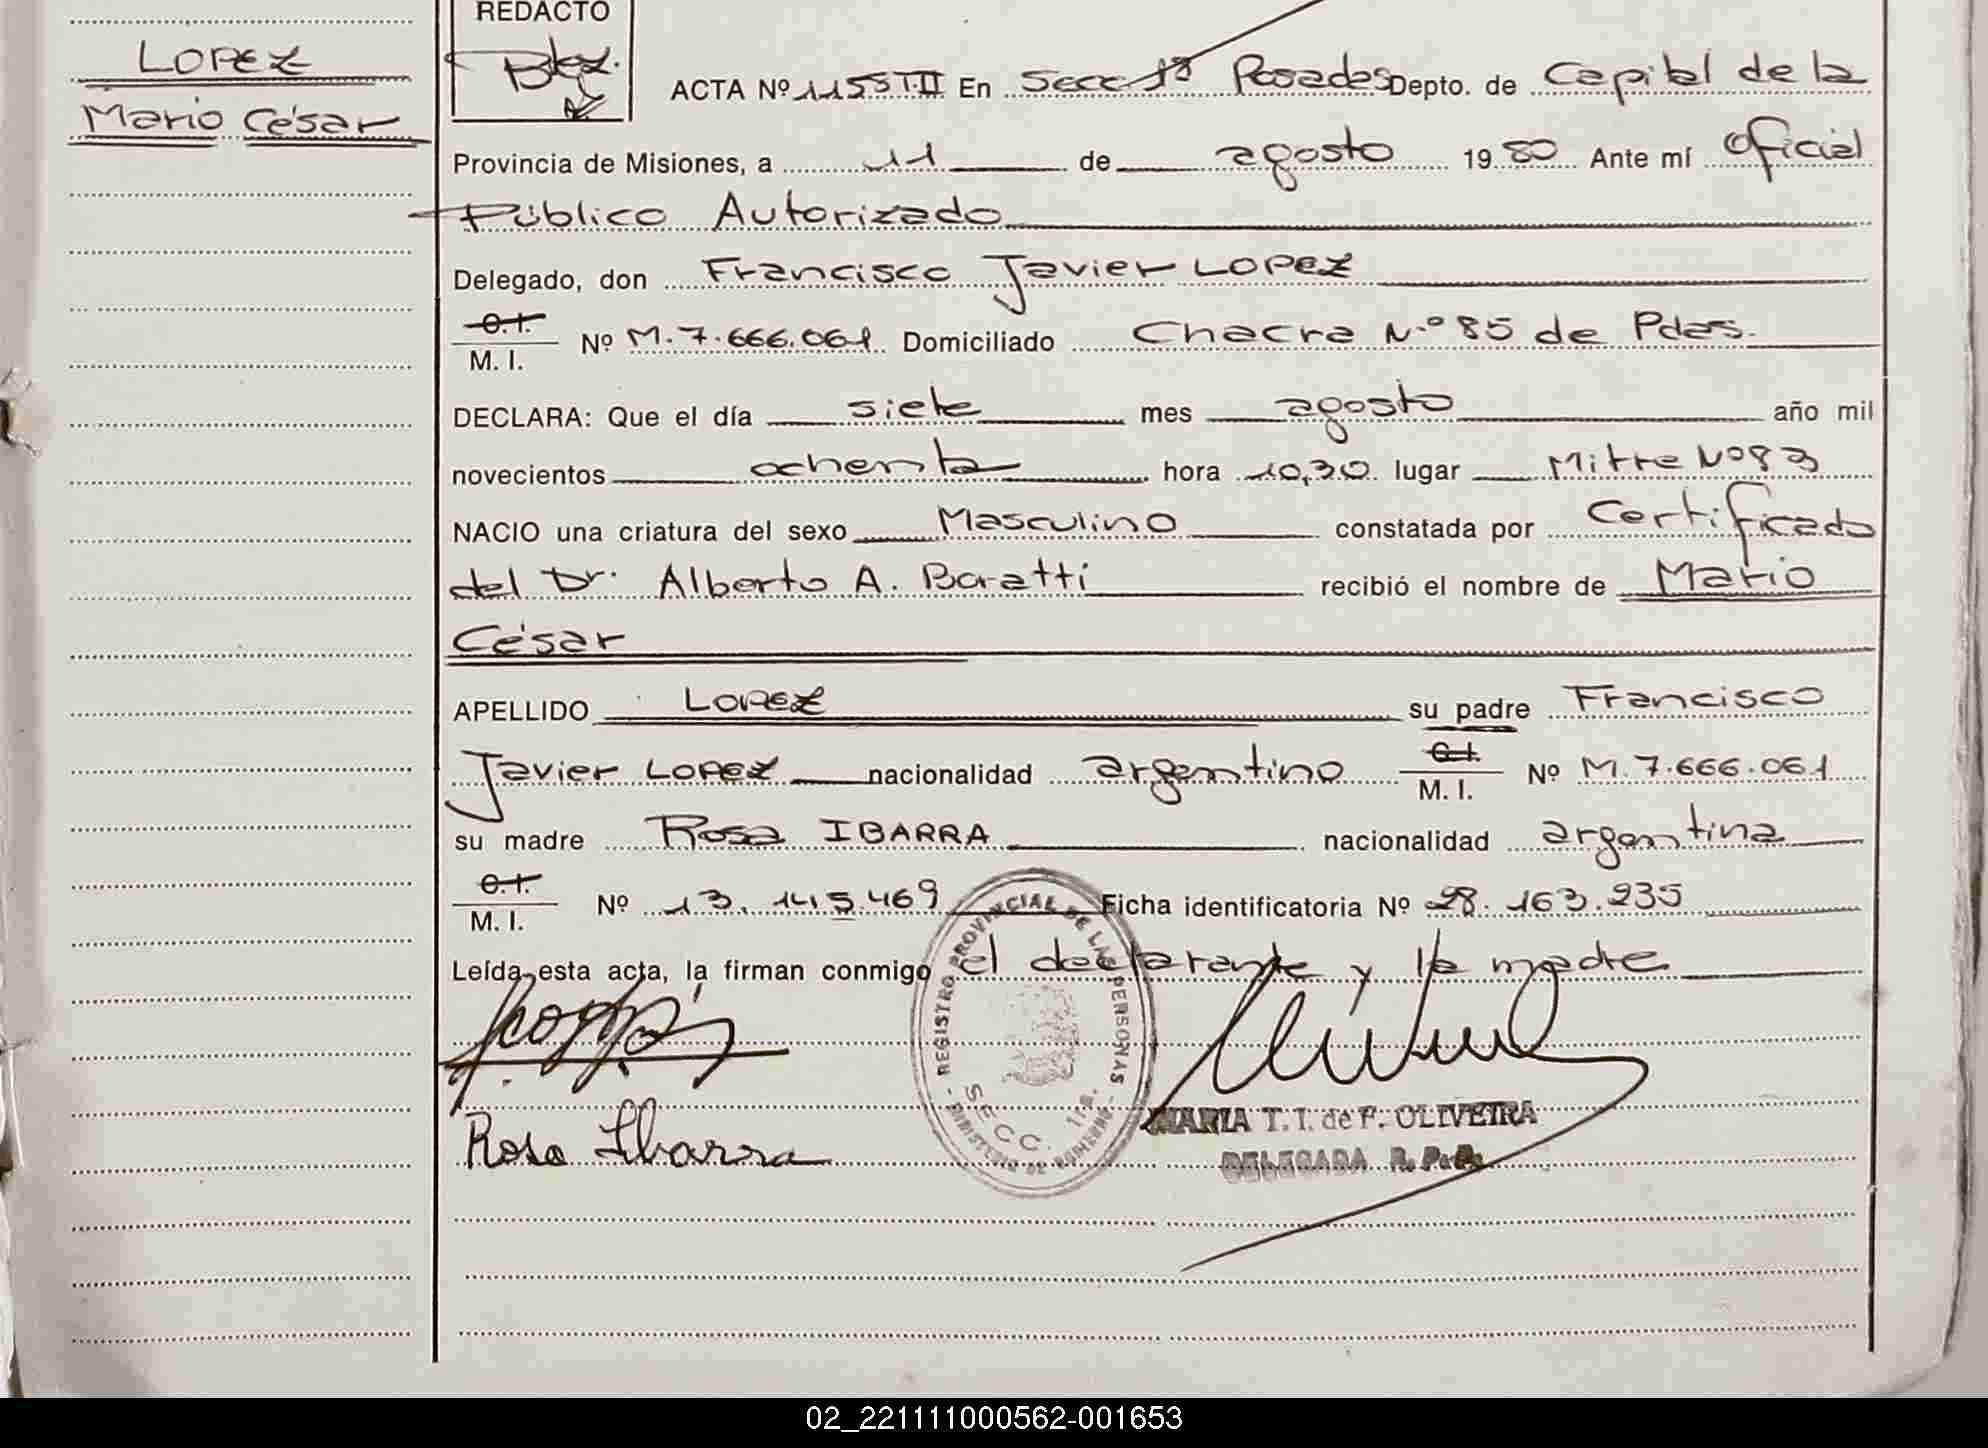 REDACTO
LOPEZ
Mario César
ACTA Nº 1155 T.II En Secc 1ª Posadas Depto. de Capital de la
Provincia de Misiones, a 11 de agosto 1980 Ante mí Oficial
Público Autorizado
Delegado, don Francisco Javier LOPEZ
C.I.
M. I. Nº M.7.666.061 Domiciliado Chacra N.º 85 de Pdas.
DECLARA: Que el día siete mes agosto año mil
novecientos ochenta hora 10,30 lugar Mitre Nº 83
NACIO una criatura del sexo Masculino constatada por Certificado
del Dr. Alberto A. Baratti recibió el nombre de Mario
César
APELLIDO LOPEZ su padre Francisco
Javier LOPEZ nacionalidad argentino C.I. M. I. Nº M.7.666.061
su madre Rosa IBARRA nacionalidad argentina
C.I.
M. I. Nº 13.145.469 Ficha identificatoria Nº 28.163.235
Leída esta acta, la firman conmigo el declarante y la madre
REGISTRO PROVINCIAL DE LAS PERSONAS
SECC. 1ra.
- MINISTERIO DE GOBIERNO -
MARIA T. I. de F. OLIVEIRA
Rosa Ibarra
DELEGADA R. P. P.
02_221111000562-001653